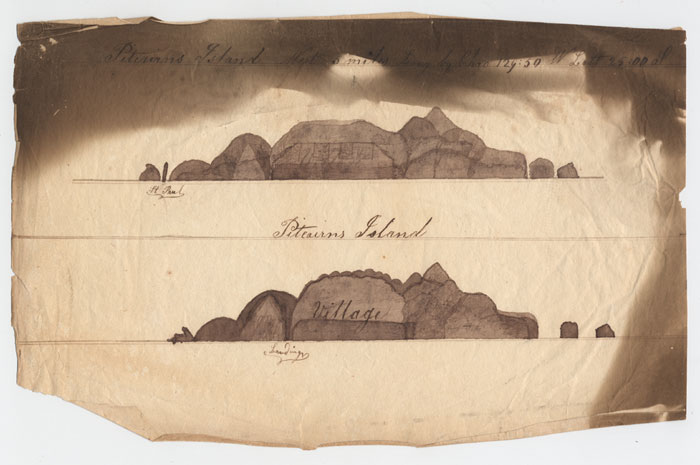 Pitcairns Island West 5 miles by Chro 129.50 W Latt 25.00 S
St Paul
Pitcairns Island
Village
Landing